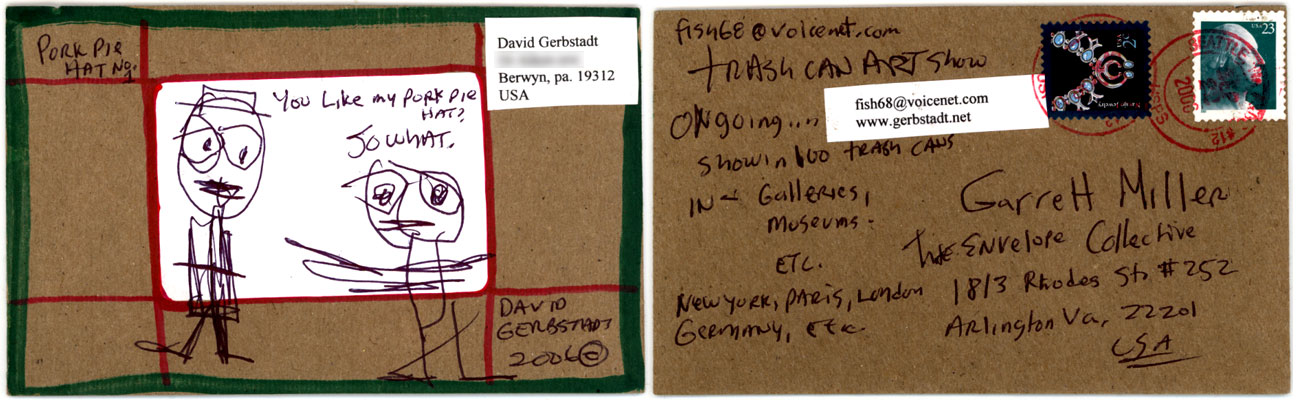 PORK PIE
HAT No.
David Gerbstadt
Berwyn, pa. 19312
USA
You Like my PORK PIE
HAT?
So WHAT.
DAVID
GERBSTADT
2006©
fish68@voicenet.com
TRASH CAN ART Show
fish68@voicenet.com
www.gerbstadt.net
ONgoing...
Show in 100 TRASH CANS
IN Galleries,
Museums.
ETC.
New York, PARIS, London
Germany, Etc.
USA 2¢
USA 23
SEATTLE
2006
#12
Garrett Miller
The ENvelope Collective
1813 Rhodes St. #252
Arlington Va, 22201
USA